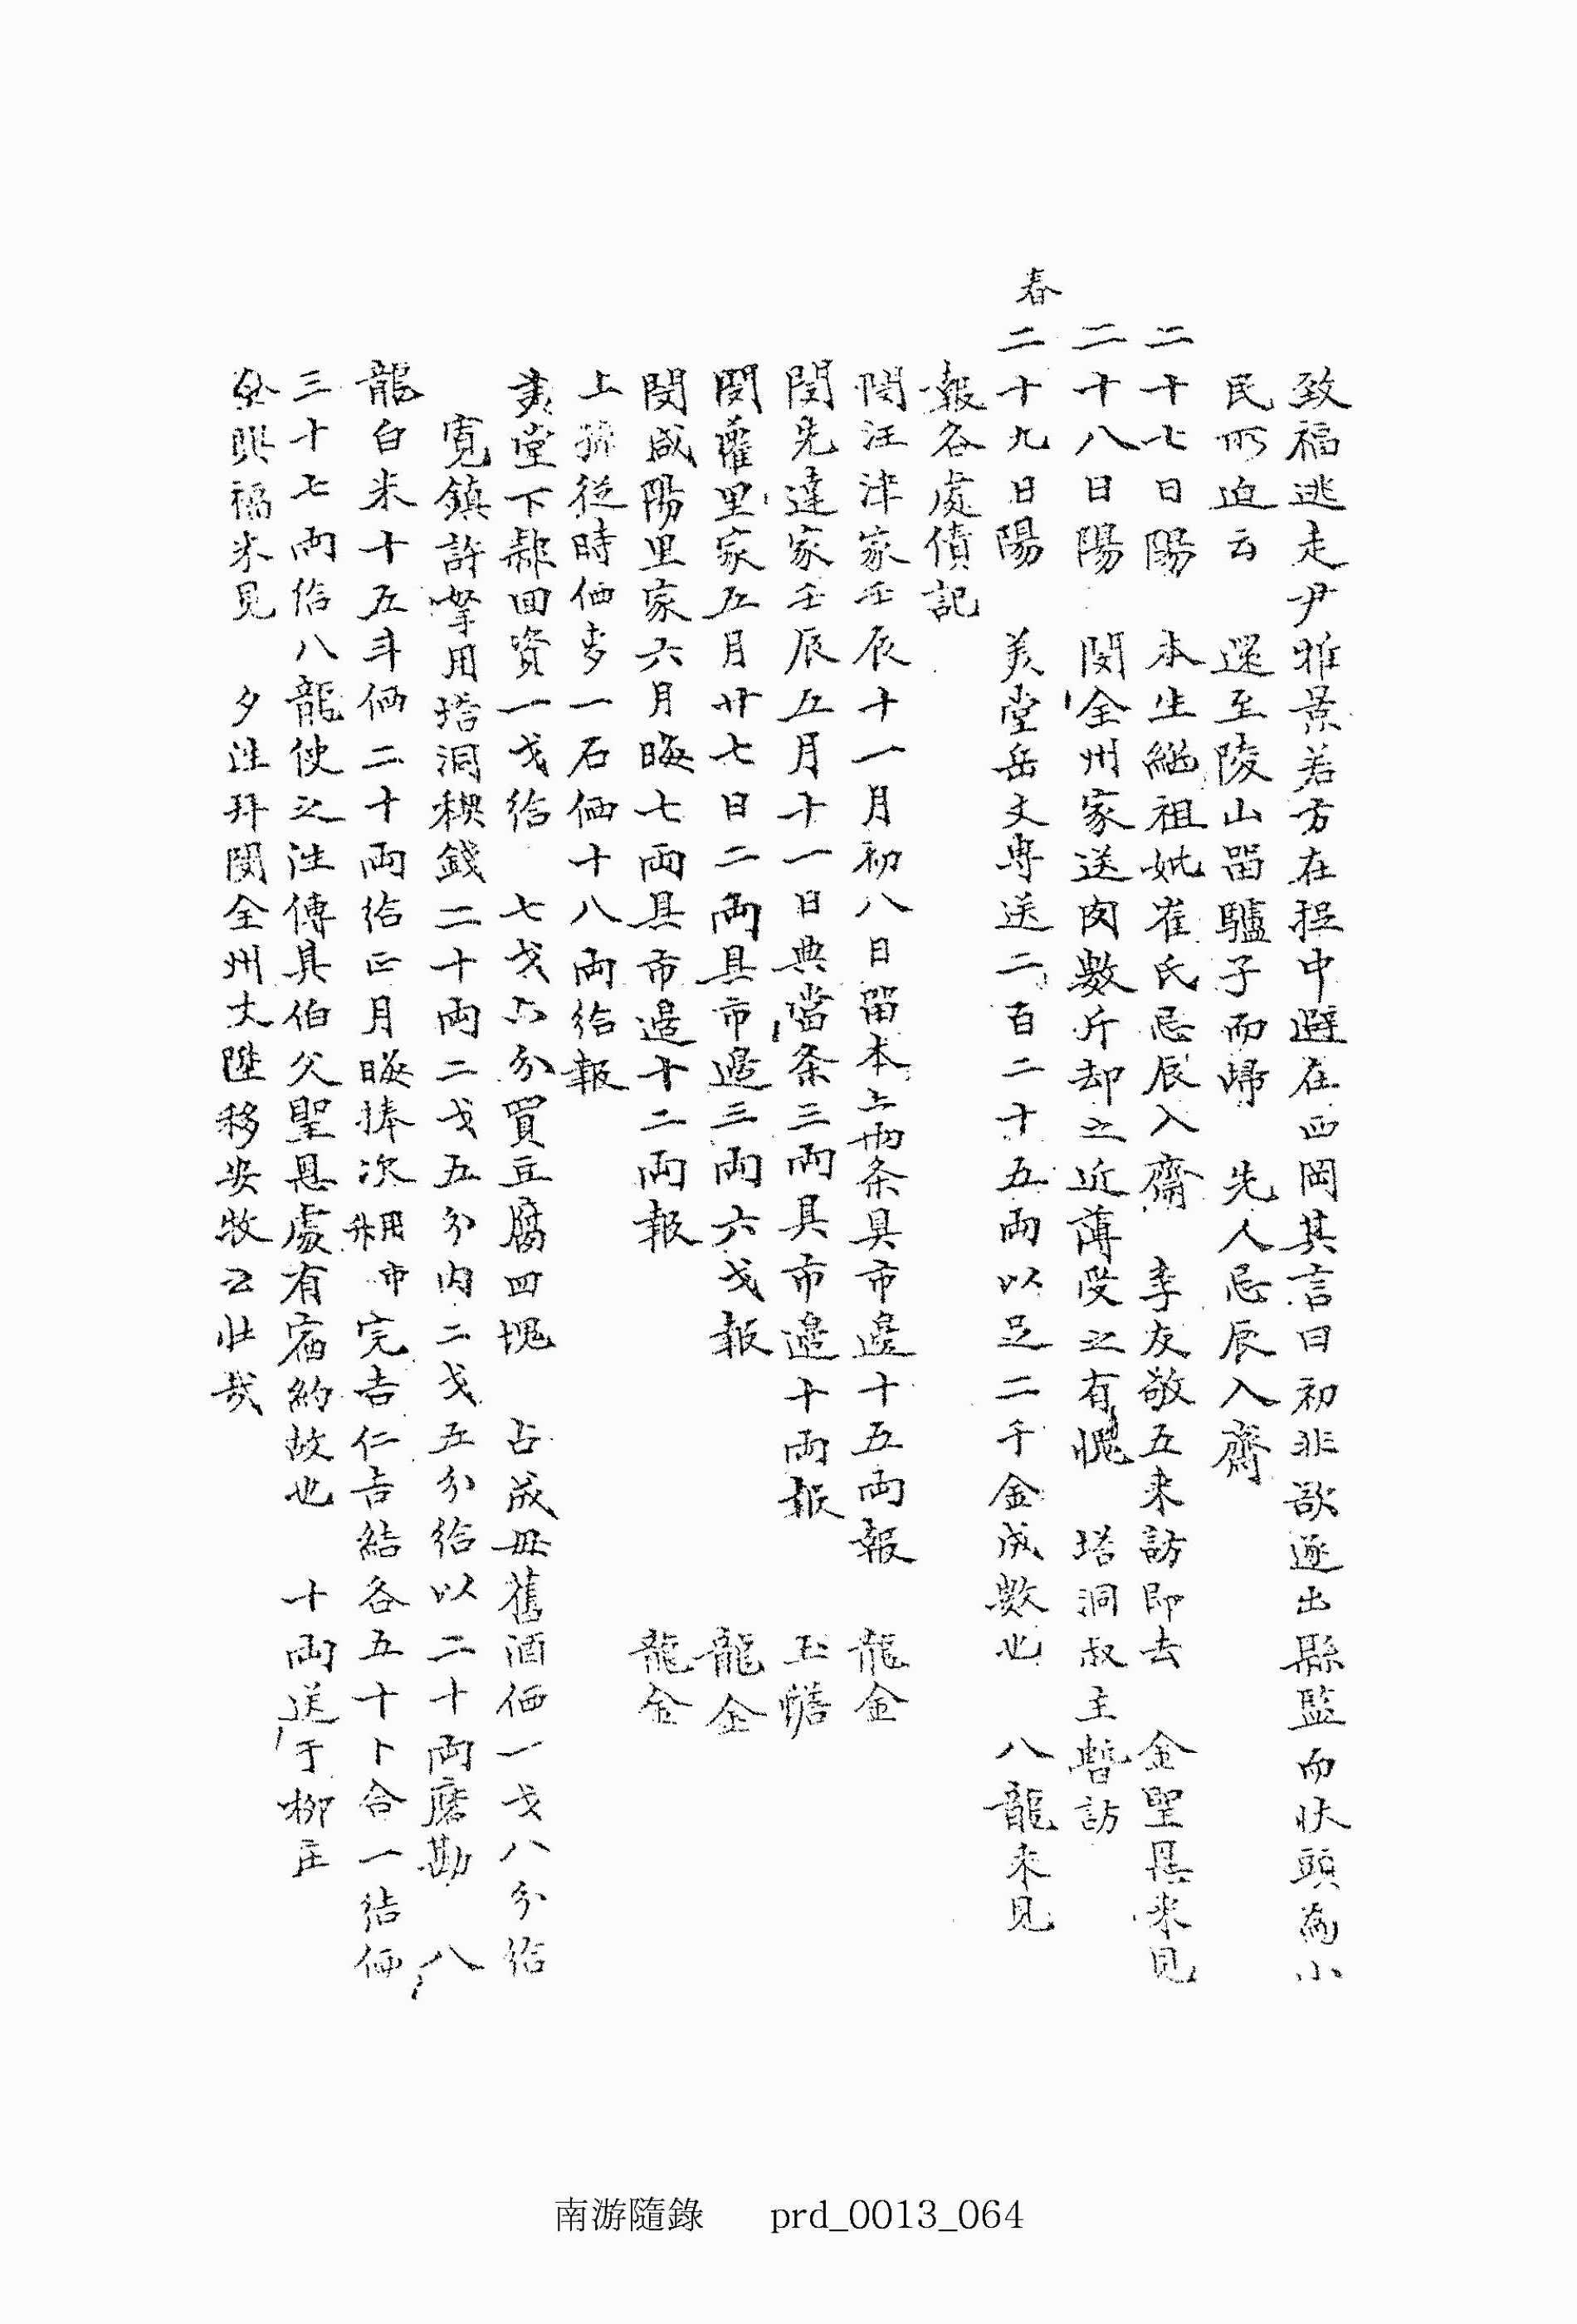 致福逃走尹雅景若方在捉中避在西岡其言曰初非欲逐出縣監而狀頭為小
民所迫云　還至陵山留驢子而歸　先人忌辰入齋
二十七日陽　本生継祖妣崔氏忌辰入齋　李友敬五来訪即去　金聖具来見
二十八日陽　閔全州家送肉數斤却之近薄受之有愧　塔洞叔主暫訪
春
二十九日陽　美堂岳丈專送二百二十五両以足二千金成數也　八龍来見
報各處債記
閔汪津家壬辰十一月初八日留本上両条具市邊十五両報　龍金
閔先達家壬辰五月十一日典當条三両具市邊十両報　玉
閔蘿里家五月廿七日二両具市邊三両六戈報　龍金
閔咸陽里家六月晦七両具市邊十二両報　龍金
上従時価麥一石価十八両給報
美堂下隷回資一戈給　七戈六分買豆腐四塊　占成毋舊酒価一戈八分給
寛鎮許挐用塔洞稧錢二十両二戈五分内二戈五分給以二十両磨勘　八
龍白米十五斗価二十両給正月晦捧次　完吉仁吉結各五十卜合一結価
三十七両給八龍使之往傳其伯父聖恩處有宿約故也　十両送于柳庄
金興福来見　夕往拜閔全州丈陞移安牧云壯哉
南游隨錄　prd_0013_064